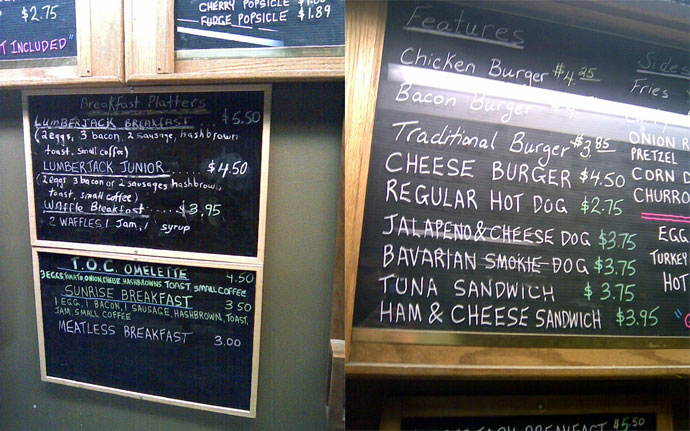 $2.75
T INCLUDED"
CHERRY POPSICLE
FUDGE POPSICLE $1.89
Breakfast Platters
LUMBERJACK BREAKFAST $5.50
(2 eggs, 3 bacon, 2 sausage, hashbrown
toast, small coffee)
LUMBERJACK JUNIOR..... $4.50
(2 eggs 3 bacon or 2 sausages hashbrown,
toast, small coffee)
Waffle Breakfast..... $3.95
2 WAFFLES, 1 Jam, 1 syrup
T.O.C. OMELETTE 4.50
3 EGGS, TOMATO, ONION, CHEESE, HASHBROWNS TOAST SMALL COFFEE
SUNRISE BREAKFAST 3.50
1 EGG, 1 BACON, 1 SAUSAGE, HASHBROWN, TOAST,
JAM, SMALL COFFEE
MEATLESS BREAKFAST 3.00
Features
Chicken Burger $4.25
Bacon Burger
Traditional Burger $3.85
CHEESE BURGER $4.50
REGULAR HOT DOG $2.75
JALAPENO & CHEESE DOG $3.75
BAVARIAN SMOKIE DOG $3.75
TUNA SANDWICH $3.75
HAM & CHEESE SANDWICH $3.95
Sides
Fries
ONION R
PRETZEL
CORN D
CHURRO
EGG
TURKEY
HOT
BREAKFAST $5.50